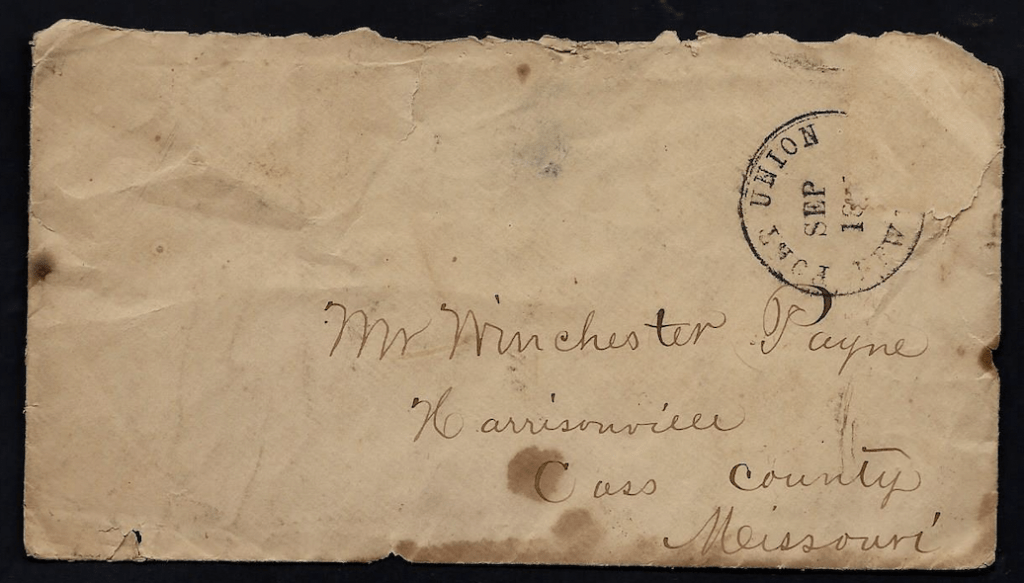 FORT UNION NEW
SEP
18
Mr Winchester Payne
Harrisonville
Cass county
Missouri